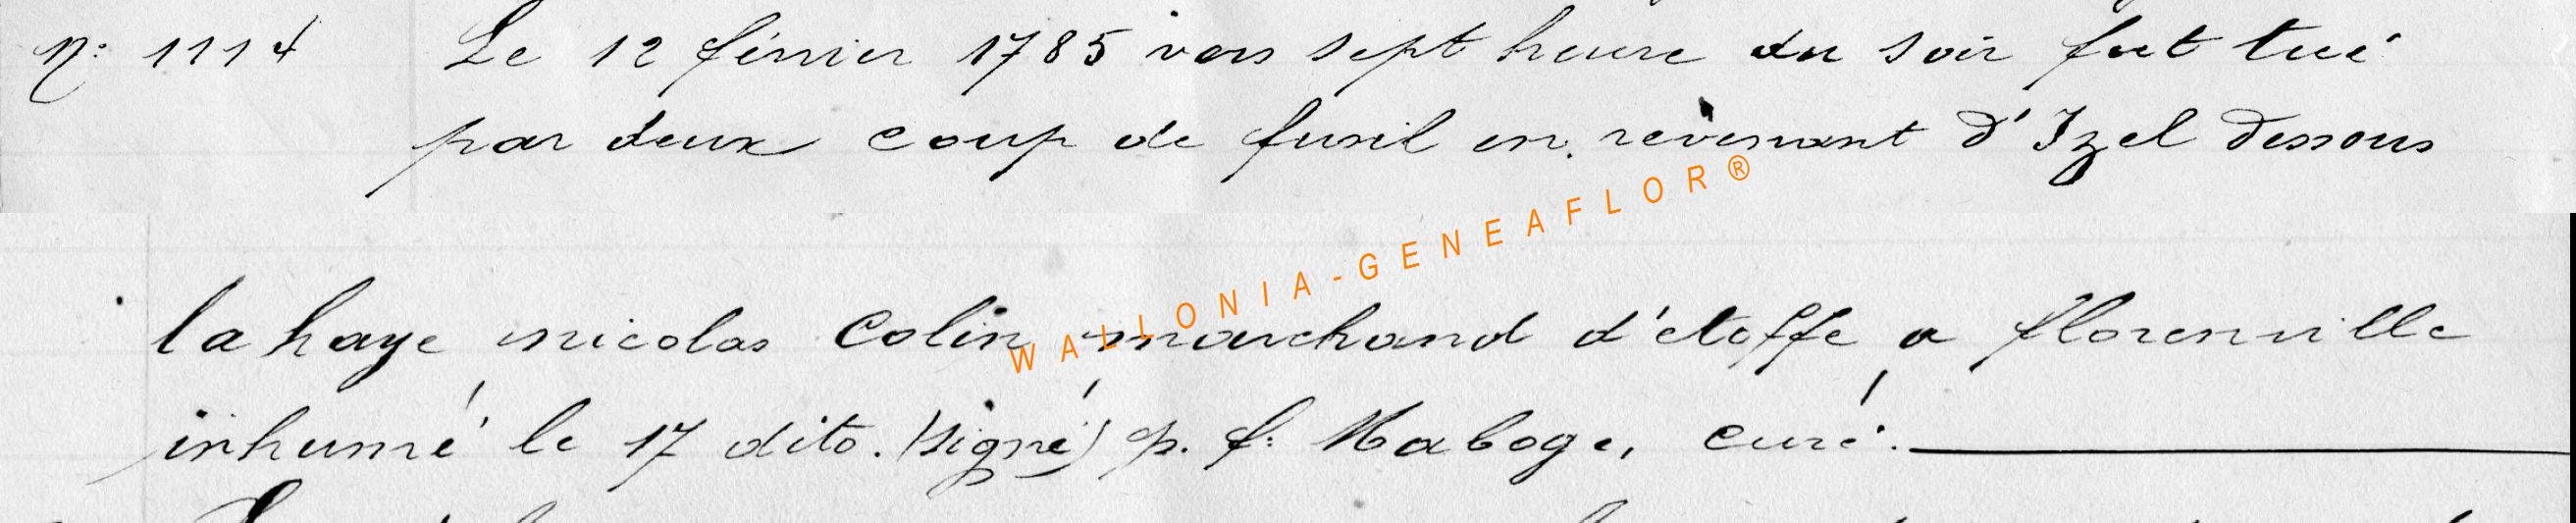 N: 1114 Le 12 février 1785 vers sept heure du soir fut tué
par deux coup de fusil en revenant d'Izel dessous
la haye nicolas Colin marchand d'etoffe a florenville
inhumé le 17 dito. (signé) p. f: Maboge, curé.
WALLONIA-GENEAFLOR®